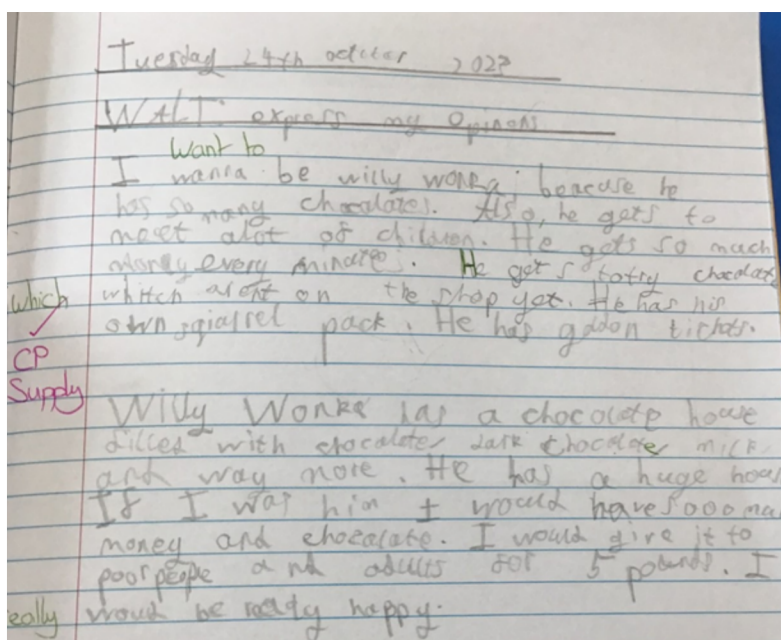 Tuesday 24th octcer 2023
WALT: express my opinons
Want to
I wanna be willy wonka, beacuse he
has so many chocolates. Also, he gets to
meet alot of children. He gets so much
money every minates. He get s to try chocolate
which
whitch arent on the shop yet. He has his
own sqiarrel pack. He has goldon tichets.
CP
Supply
Willy Wonka has a chocolate house
filled with chocolate, dark chocolate, milk
and way more. He has a huge hous
If I was him I would have sooo ma
money and chocalate. I would give it to
poor people and adults for 5 pounds. I
eally
would be really happy.